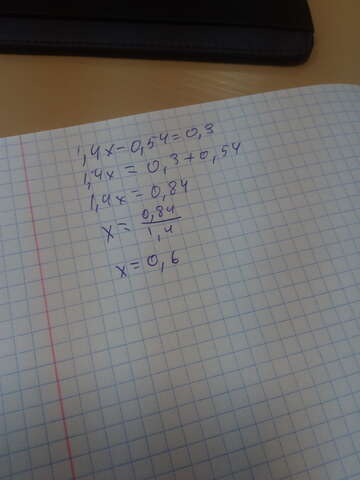 1,4x-0,54=0,3
1,4x = 0,3+0,54
1,4x = 0,84
x = 0,84/1,4
x = 0,6